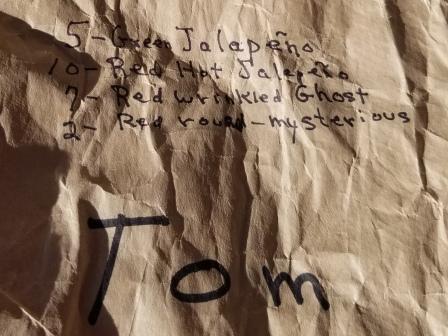 5-Green Jalapeño
10-Red Hot Jalepeño
7-Red wrinkled Ghost
2-Red round-mysterious
Tom